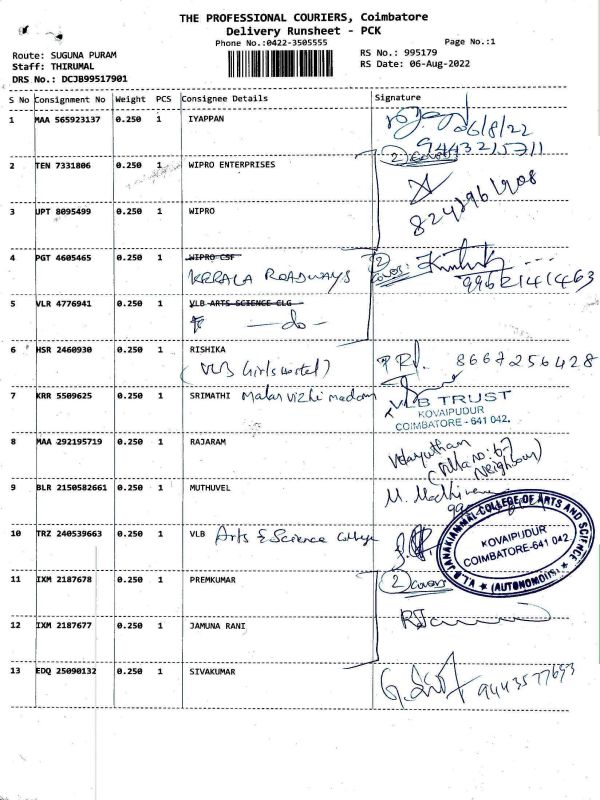 THE PROFESSIONAL COURIERS, Coimbatore
Delivery Runsheet - PCK
Phone No.:0422-3505555
Page No.:1
Route: SUGUNA PURAM
RS No.: 995179
Staff: THIRUMAL
RS Date: 06-Aug-2022
DRS No.: DCJB99517901
S No Consignment No Weight PCS Consignee Details Signature
1 MAA 565923137 0.250 1 IYAPPAN
06/8/22
9443215711
2 TEN 7331806 0.250 1 WIPRO ENTERPRISES
2 covers
3 UPT 8095499 0.250 1 WIPRO
4 PGT 4605465 0.250 1 WIPRO CSF
KERALA ROADWAYS
2 covers:
9962141463
5 VLR 4776941 0.250 1 VLB ARTS SCIENCE CLG
—do—
6 HSR 2460930 0.250 1 RISHIKA
(VLB Girls hostel)
8667256428
7 KRR 5509625 0.250 1 SRIMATHI Malar vizhi madam
VLB TRUST
KOVAIPUDUR
COIMBATORE - 641 042.
8 MAA 292195719 0.250 1 RAJARAM
Velayutham
(Villa no: 67
Neighbour)
9 BLR 2150582661 0.250 1 MUTHUVEL
10 TRZ 240539663 0.250 1 VLB Arts & Science College
V.L.B. JANAKIAMMAL COLLEGE OF ARTS AND SCIENCE
KOVAIPUDUR
COIMBATORE-641 042
(AUTONOMOUS)
11 IXM 2187678 0.250 1 PREMKUMAR
2 covers
12 IXM 2187677 0.250 1 JAMUNA RANI
13 EDQ 25090132 0.250 1 SIVAKUMAR
9443577693